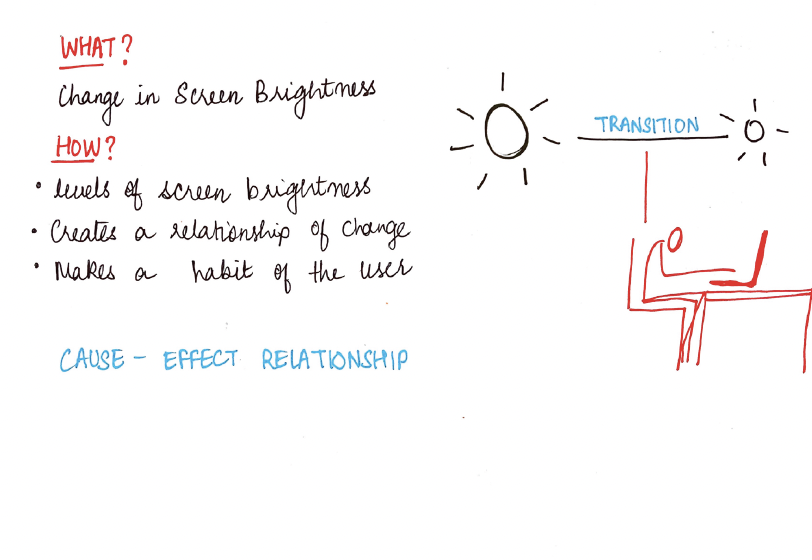 WHAT?
Change in Screen Brightness
HOW?
• levels of screen brightness
• Creates a relationship of change
• Makes a habit of the user
CAUSE - EFFECT RELATIONSHIP
TRANSITION